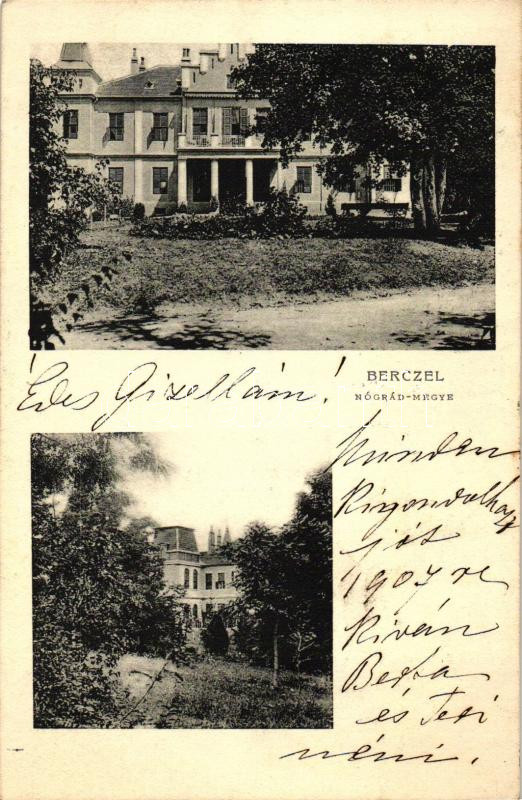 Édes Gizellám!
BERCZEL
NÓGRÁD-MEGYE
Minden
kigondolható
jót
1907 re
kiván
Berta
és Teri
néni.